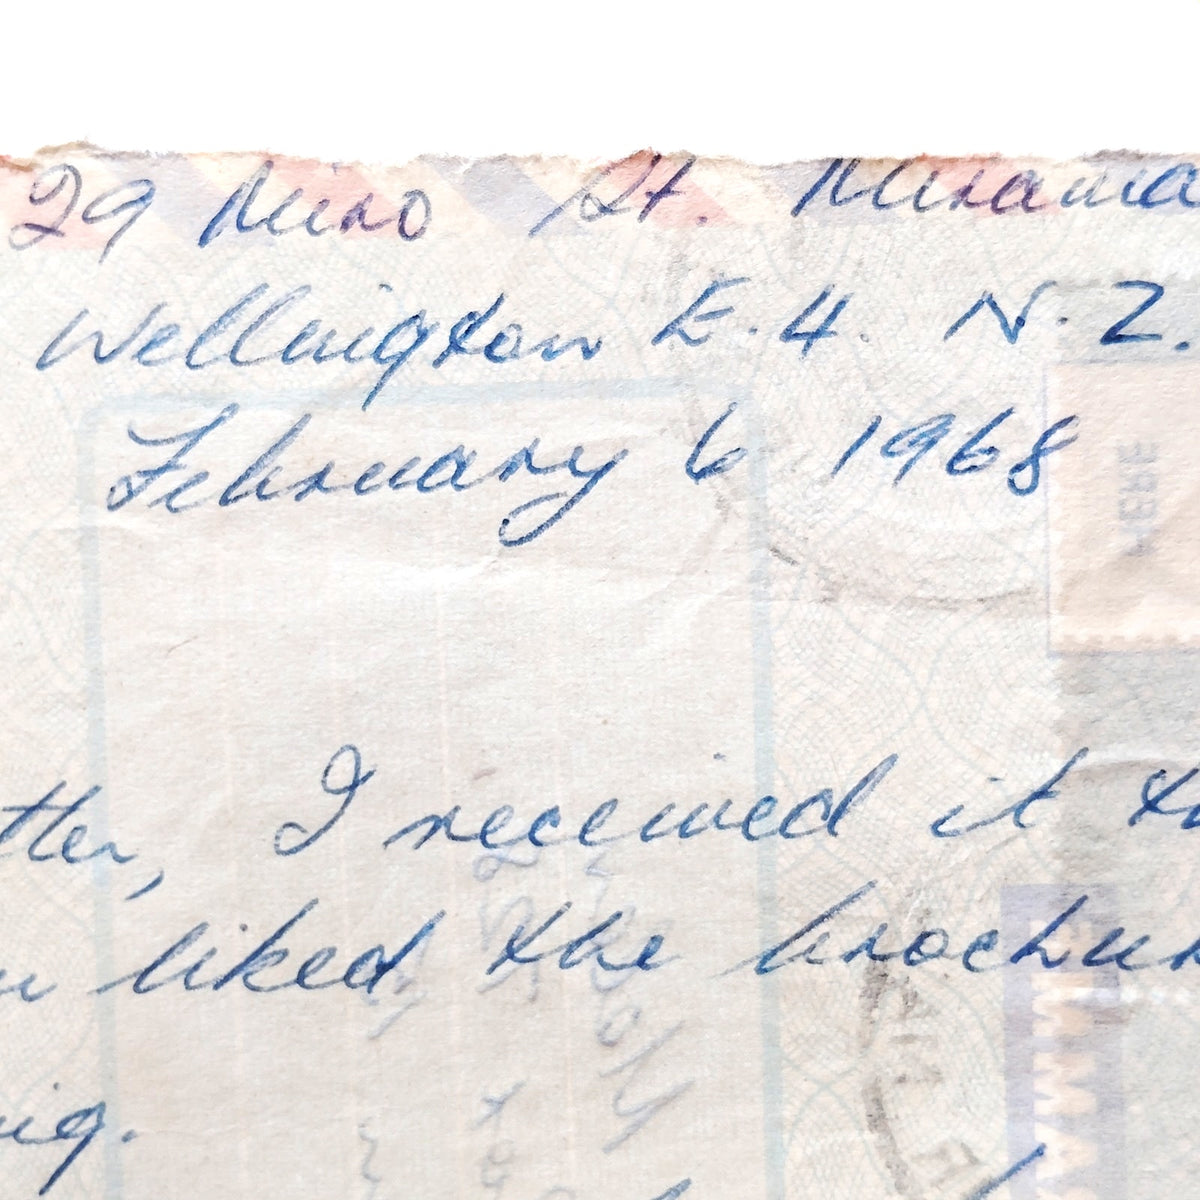 29 Miro St. Mirama
Wellington E.4. N.Z.
February 6 1968
tter, I received it
liked the brochur
HERE